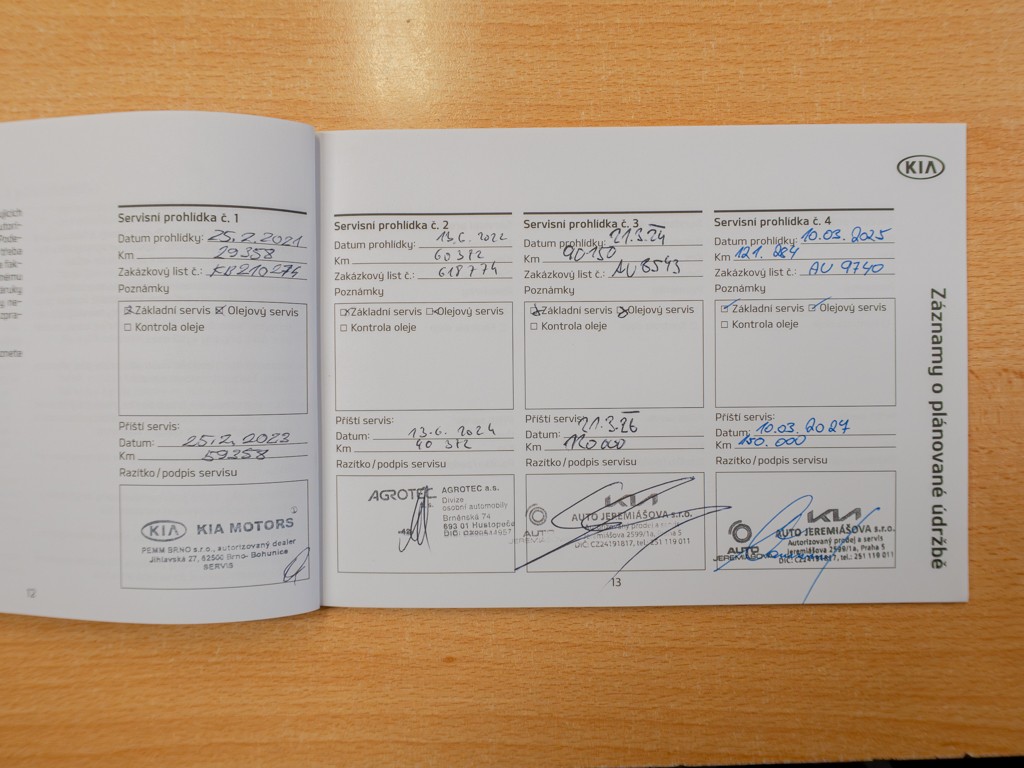 KIA
Servisní prohlídka č. 1
Datum prohlídky: 25.2.2021
Km 29358
Zakázkový list č.: KB210274
Poznámky
Základní servis Olejový servis
Kontrola oleje
Příští servis:
Datum: 25.2.2023
Km 59358
Razítko/podpis servisu
KIA KIA MOTORS
PEMM BRNO s.r.o., autorizovaný dealer
Jihlavská 27, 62500 Brno- Bohunice
SERVIS
12
Servisní prohlídka č. 2
Datum prohlídky: 13.6.2022
Km 60372
Zakázkový list č.: 618774
Poznámky
Základní servis Olejový servis
Kontrola oleje
Příští servis:
Datum: 13.6.2024
Km 90372
Razítko/podpis servisu
AGROTEC AGROTEC a.s.
Divize
osobní automobily
Brněnská 74
693 01 Hustopeče
DIČ:
Servisní prohlídka č. 3
Datum prohlídky: 21.3.24
Km 90 150
Zakázkový list č.: AU 8543
Poznámky
Základní servis Olejový servis
Kontrola oleje
Příští servis:
Datum: 21.3.26
Km 120 000
Razítko/podpis servisu
KIA
AUTO JEREMIÁŠOVA s.r.o.
Jeremiášova 2599/1a, Praha 5
DIČ: CZ24191817, tel.: 251 119 011
13
Servisní prohlídka č. 4
Datum prohlídky: 10.03.2025
Km 121.284
Zakázkový list č.: AU 9740
Poznámky
Základní servis Olejový servis
Kontrola oleje
Příští servis:
Datum: 10.03.2027
Km 150.000
Razítko/podpis servisu
KIA
AUTO JEREMIÁŠOVA s.r.o.
Autorizovaný prodej a servis
Jeremiášova 2599/1a, Praha 5
DIČ: CZ24191817, tel.: 251 119 011
AUTO
JEREMIÁŠOVA
Záznamy o plánované údržbě